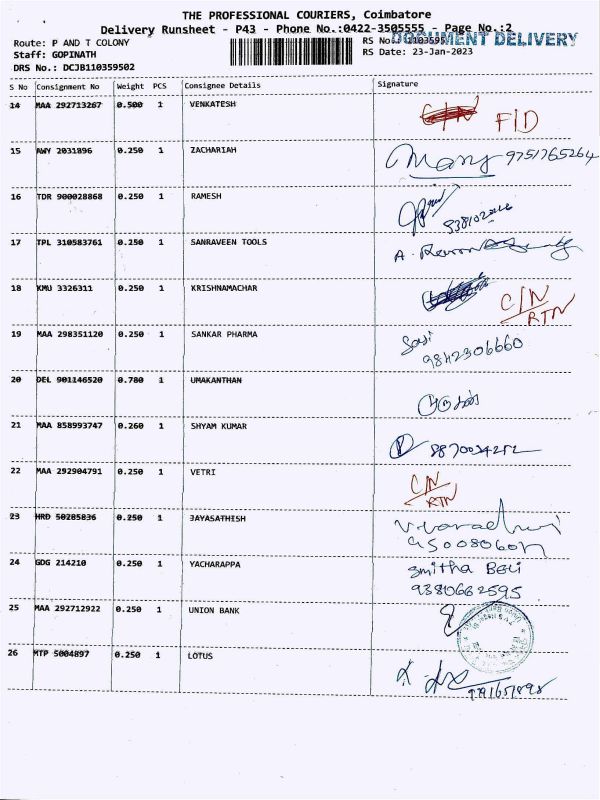 THE PROFESSIONAL COURIERS, Coimbatore
Delivery Runsheet - P43 - Phone No.:0422-3505555 - Page No.:2
DOCUMENT DELIVERY
Route: P AND T COLONY
Staff: GOPINATH RS Date: 23-Jan-2023
DRS No.: DCJB110359502
S No Consignment No Weight PCS Consignee Details Signature
14 MAA 292713267 0.500 1 VENKATESH C/N F/D
15 AWY 2031896 0.250 1 ZACHARIAH Mary 9751765264
16 TDR 900028868 0.250 1 RAMESH
17 TPL 310583761 0.250 1 SANRAVEEN TOOLS
18 KMU 3326311 0.250 1 KRISHNAMACHAR C/N RTN
19 MAA 298351120 0.250 1 SANKAR PHARMA Sasi
9842306660
20 DEL 901146520 0.780 1 UMAKANTHAN
21 MAA 858993747 0.260 1 SHYAM KUMAR
22 MAA 292904791 0.250 1 VETRI C/N
RTN
23 HRD 50285836 0.250 1 JAYASATHISH
24 GDG 214210 0.250 1 YACHARAPPA Smitha
9380662595
25 MAA 292712922 0.250 1 UNION BANK
26 MTP 5004897 0.250 1 LOTUS